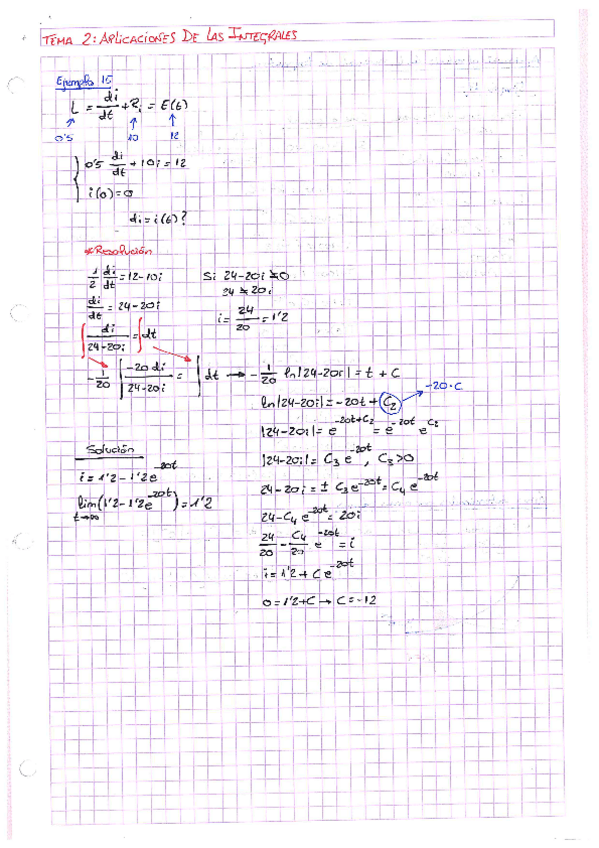 TEMA 2: APLICACIONES DE LAS INTEGRALES
Ejemplo 15
L = di/dt + Ri = E(t)
0'5 10 12
{ 0'5 di/dt + 10i = 12
i(0) = 0
di = i(t)?
*Resolución
1/2 di/dt = 12-10i
di/dt = 24-20i
∫ di/(24-20i) = ∫ dt
-1/20 ∫ -20 di/(24-20i) = ∫ dt → -1/20 ln|24-20i| = t + C
Si 24-20i ≠ 0
24 ≠ 20i
i = 24/20 = 1'2
ln|24-20i| = -20t + C₂ → -20·C
|24-20i| = e^(-20t+C₂) = e^(-20t) e^(C₂)
|24-20i| = C₃ e^(-20t), C₃>0
24-20i = ± C₃e^(-20t) = C₄ e^(-20t)
24-C₄ e^(-20t) = 20i
24/20 - C₄/20 e^(-20t) = i
i = 1'2 + C e^(-20t)
0 = 1'2+C → C = -12
Solución
i = 1'2 - 1'2e^(-20t)
lim t→∞ (1'2-1'2e^(-20t)) = 1'2